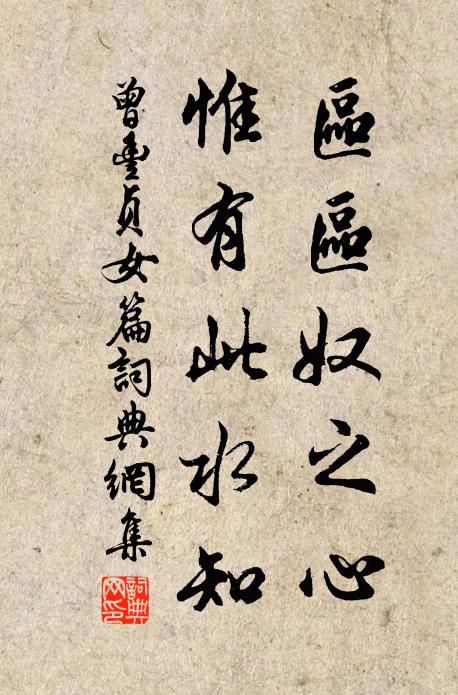 區區奴之心
惟有此水知
曾豐貞女篇詞典網集
詞典網印